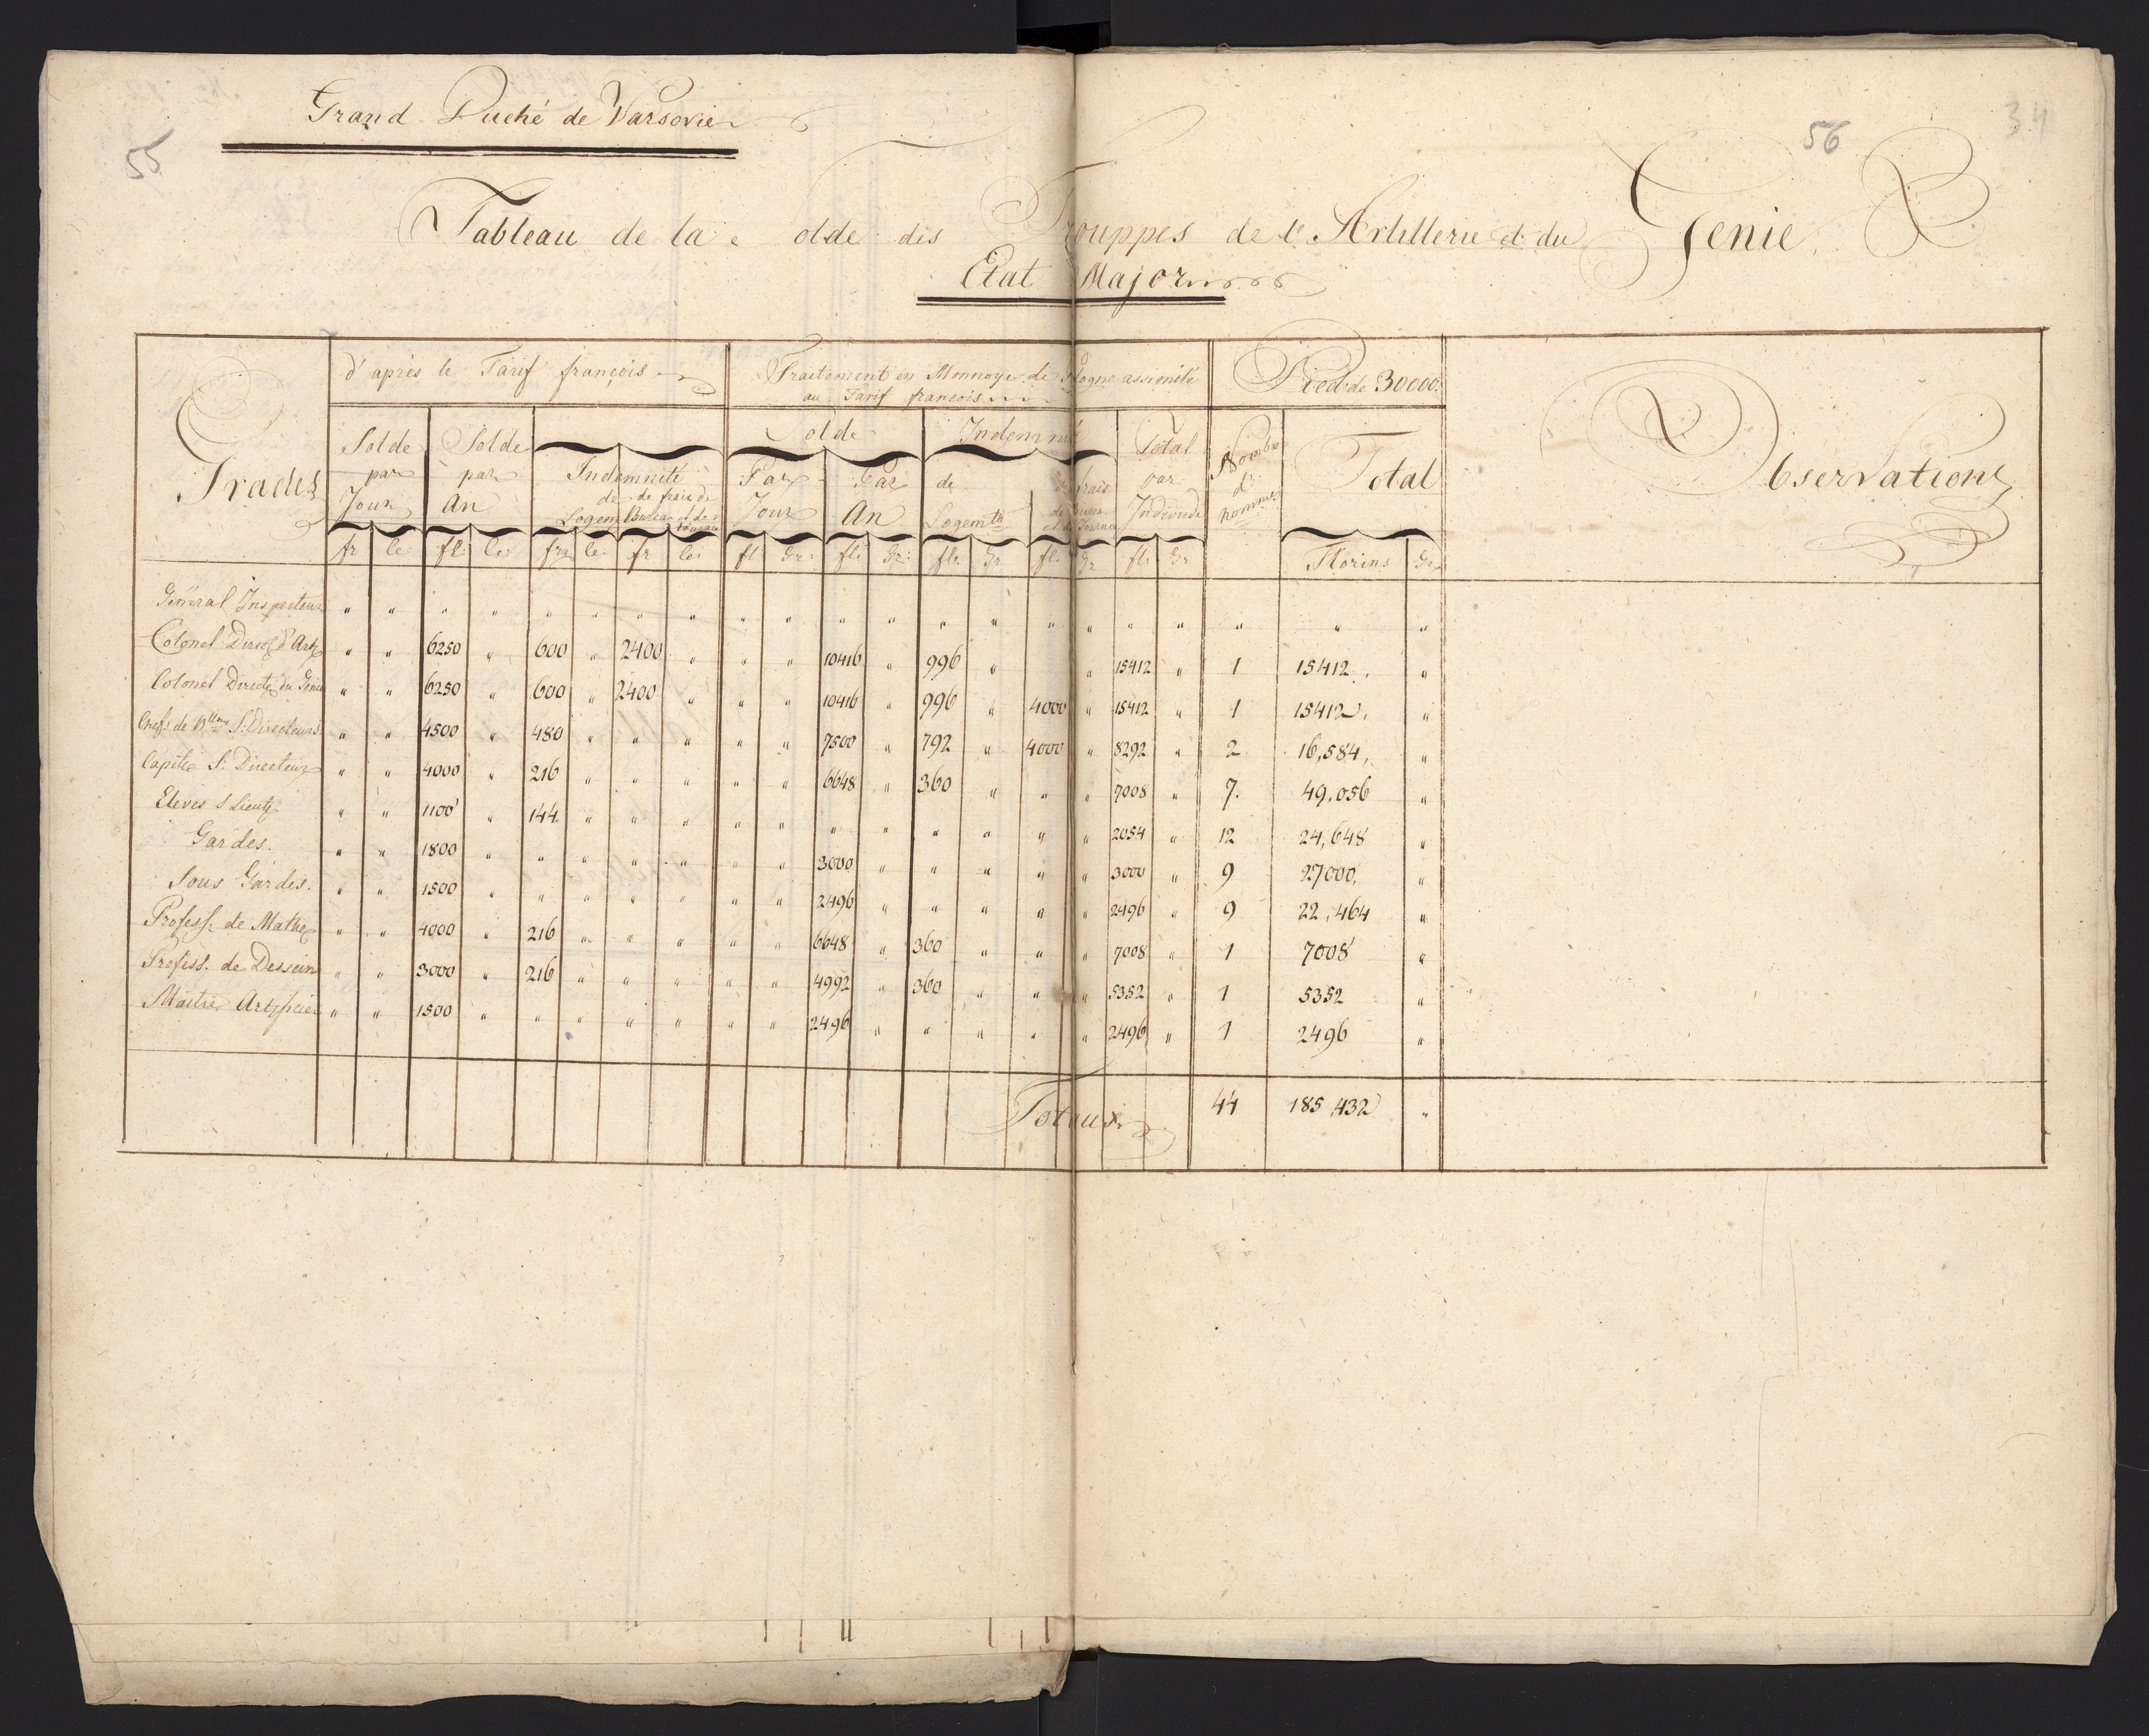 Grand Duché de Varsovie
55
56
34
Tableau de la Solde des Trouppes de l'Artillerie et du Genie
Etat Major
Grades
d'après le Tarif françois
Traitement en Monnoye de Pologne assimilé
au Tarif françois
Pied de 30000
Observations
Solde par Jour
Solde par An
Indemnité
de Logem
de frais de Bureau et de tournée
Solde
Par Jour
Par An
Indemnité
de Logemts
de frais de Bureau et de Tournée
Total par Individu
Nombre d'hommes
Total
fr ce fl: ce: fr ce fr ce: fl Gr: fl: Gr: fl: Gr fl: Gr fl: Gr Florins Gr
Général Inspecteur " " " " " " " " " " " " " " " " " " " " "
Colonel Direct d'Art " " 6250 " 600 " 2400 " " " 10416 " 996 " " 15412 " 1 15412 "
Colonel Direct du Génie " " 6250 " 600 " 2400 " " " 10416 " 996 " 4000 " 15412 " 1 15412 "
Chefs de Bllon S: Directeurs " " 4500 " 480 " " " " " 7500 " 792 " 4000 " 8292 " 2 16,584 "
Capite S: Directeur " " 4000 " 216 " " " " " 6648 " 360 " " " 7008 " 7. 49,056 "
Eleves S Lieut " " 1100 " 144 " " " " " " " " " " " 2054 " 12 24,648 "
Gardes. " " 1800 " " " " " " " 3000 " " " " " 3000 " 9 27000, "
Sous Gardes. " " 1500 " " " " " " " 2496 " " " " " 2496 " 9 22,464 "
Profess: de Mathe " " 4000 " 216 " " " " " 6648 " 360 " " " 7008 " 1 7008 "
Profess. de Dessein " " 3000 " 216 " " " " " 4992 " 360 " " " 5352 " 1 5352 "
Maitre Artificier " " 1500 " " " " " " " 2496 " " " " " 2496 " 1 2496 "
Totaux 44 185,432 "